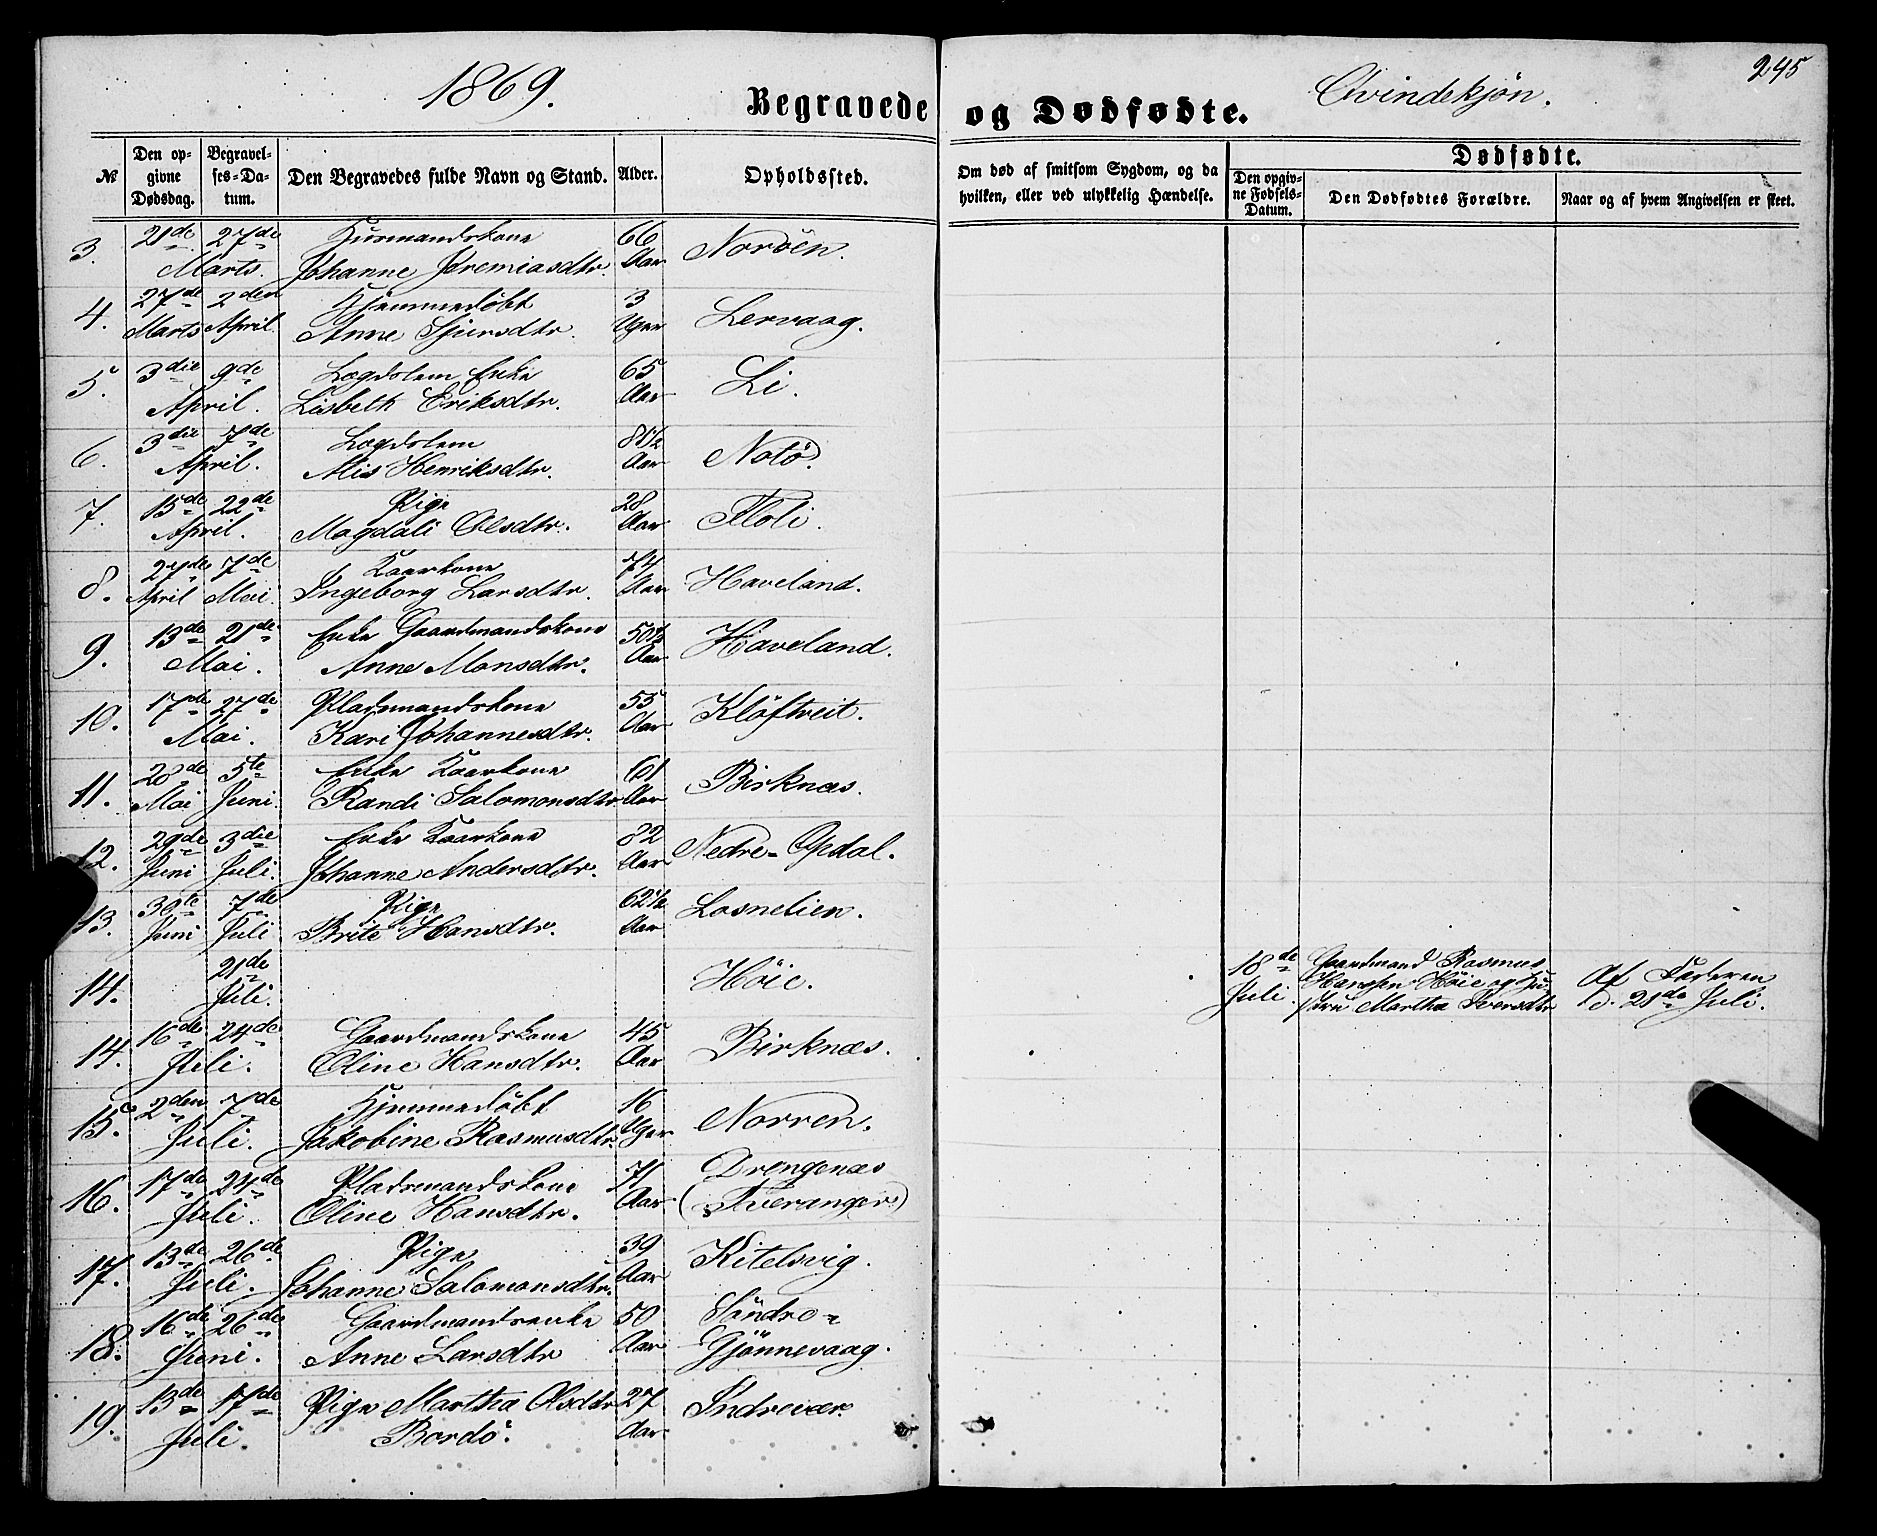 245
1869.
Begravede og Dødfødte.
Qvindekjøn.
№
Den opgivne Dødsdag.
Begravelses-Datum.
Den Begravedes fulde Navn og Stand.
Alder.
Opholdssted.
Om død af smitsom Sygdom, og da hvilken, eller ved ulykkelig Hændelse.
Dødfødte.
Den opgivne Fødsels-Datum.
Den Dødfødtes Forældre.
Naar og af hvem Angivelsen er skeet.
3. 21de 27de Marts. Huusmandskone Johanne Jeremiasdtr. 66 Aar Nordøen.
4. 27de Marts 2den April Hjemmedöbt Anne Sjursdtr. 3 Uger Lervaag.
5. 3die 9de April. Lægdslem Enke Lisbeth Eriksdtr. 65 Aar Li.
6. 3die 7de April. Lægdslem Alis Henriksdtr. 81½ Aar Notö.
7. 15de 22de April. Pige Magdali Olsdtr. 28 Aar Floli.
8. 27de April 7de Mai. Kaarkone Ingeborg Larsdtr. 74 Aar Haveland.
9. 13de 21de Mai. Enke Gaardmandskone Anne Monsdtr. 50½ Aar Haveland.
10. 17de 27de Mai. Pladsmandskone Kari Johannesdtr. 55 Aar Klöftveit.
11. 28de Mai 5te Juni. Enke Kaarkone Randi Salomonsdtr 61 Aar Birknæs.
12. 29de Juni 3die Juli. Enke Kaarkone Johanne Andersdtr. 82 Aar Nedre-Opdal.
13. 30te Juni 7de Juli Pige Brite Hansdtr. 62½ Aar Losnelien.
14. 21de Juli. Höie. 18de Juli. Gaardmand Rasmus Hansen Höie og Hustru Martha Iversdtr Af Faderen d. 21de Juli.
14. 16de 24de Juli. Gaardmandskone Oline Hansdtr. 45 Aar Birknæs.
15. 2den 7de Juli. Hjemmedöbt Jakobine Rasmusdtr. 16 Uger Norren.
16. 17de 24de Juli. Pladsmandskone Oline Hansdtr. 71 Aar Drengenæs (Tveranger)
17. 13de 26de Juli. Pige Johanne Salomonsdtr. 39 Aar Kitelsvig.
18. 16de 26de Juni. Gaardmandsenke Anne Larsdtr 50 Aar Söndre-Gjönnevaag.
19. 13de 17de Juli. Pige Martha Olsdtr Bordö. 27 Aar Indrevær.